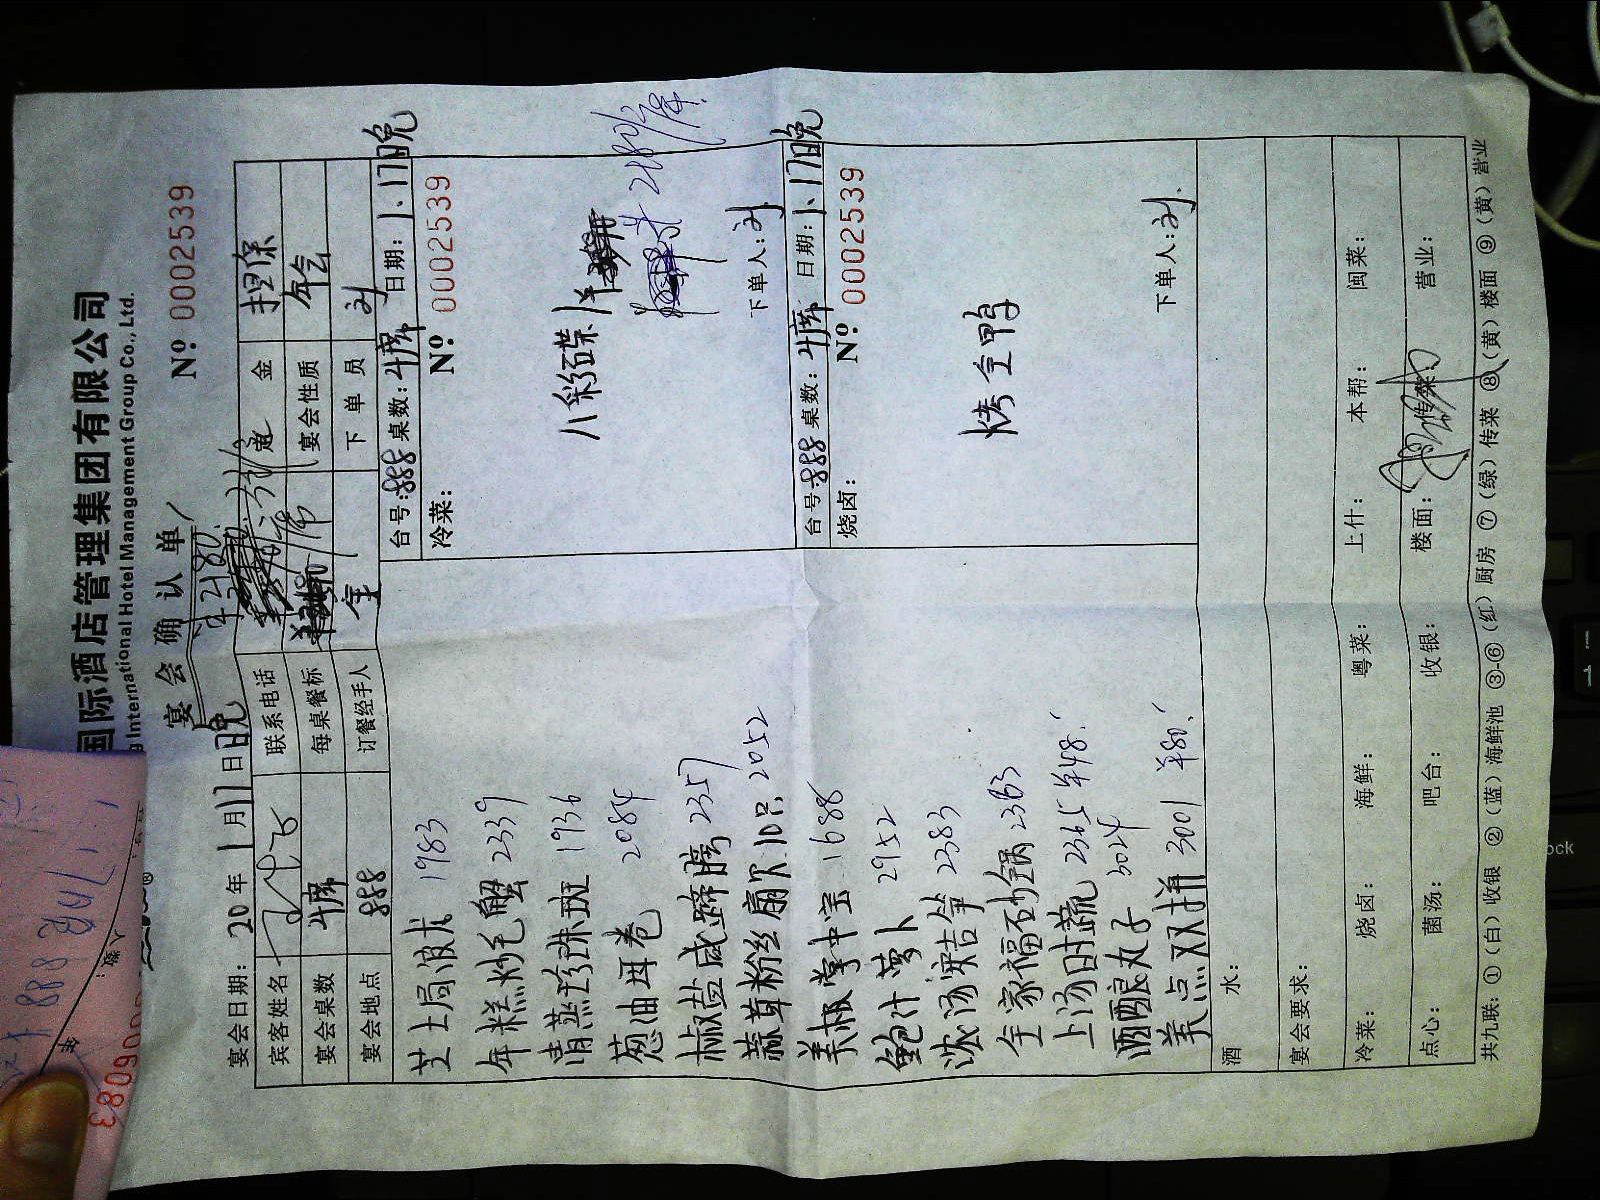 国际酒店管理集团有限公司
International Hotel Management Group Co., Ltd.
宴会确认单
№ 0002539
¥2180
宴会日期: 20 年 1月17日晚
宾客姓名
联系电话
定金 担保
宴会桌数 4席
每桌餐标
/席
宴会性质 年会
宴会地点 888
订餐经手人 金
下单员 刘
台号:888 桌数:4席 日期:1.17晚
冷菜:
№ 0002539
八彩碟
2180/席
下单人:刘
台号:888 桌数:4席 日期:1.17晚
烧卤:
№ 0002539
烤全鸭
下单人:刘
芝士局波龙 1983
年糕炒毛蟹 2339
清蒸珍珠斑 1936
葱油耳卷 2084
椒盐咸蹄膀 2357
蒜茸粉丝扇贝10只 2052
美极掌中宝 1688
鲍汁萝卜 2952
浓汤娃吉笋 2383
全家福砂锅 2383
上汤时蔬 2365 ¥48.
酒酿丸子 3024
美点双拼 3001 ¥80.
酒水:
宴会要求:
冷菜: 烧卤: 海鲜: 粤菜: 上什: 本帮: 闽菜:
点心: 菌汤: 吧台: 收银: 楼面: 传菜: 营业:
共九联: ①(白)收银 ②(蓝)海鲜池 ③-⑥(红)厨房 ⑦(绿)传菜 ⑧(黄)楼面 ⑨(黄)营业
888